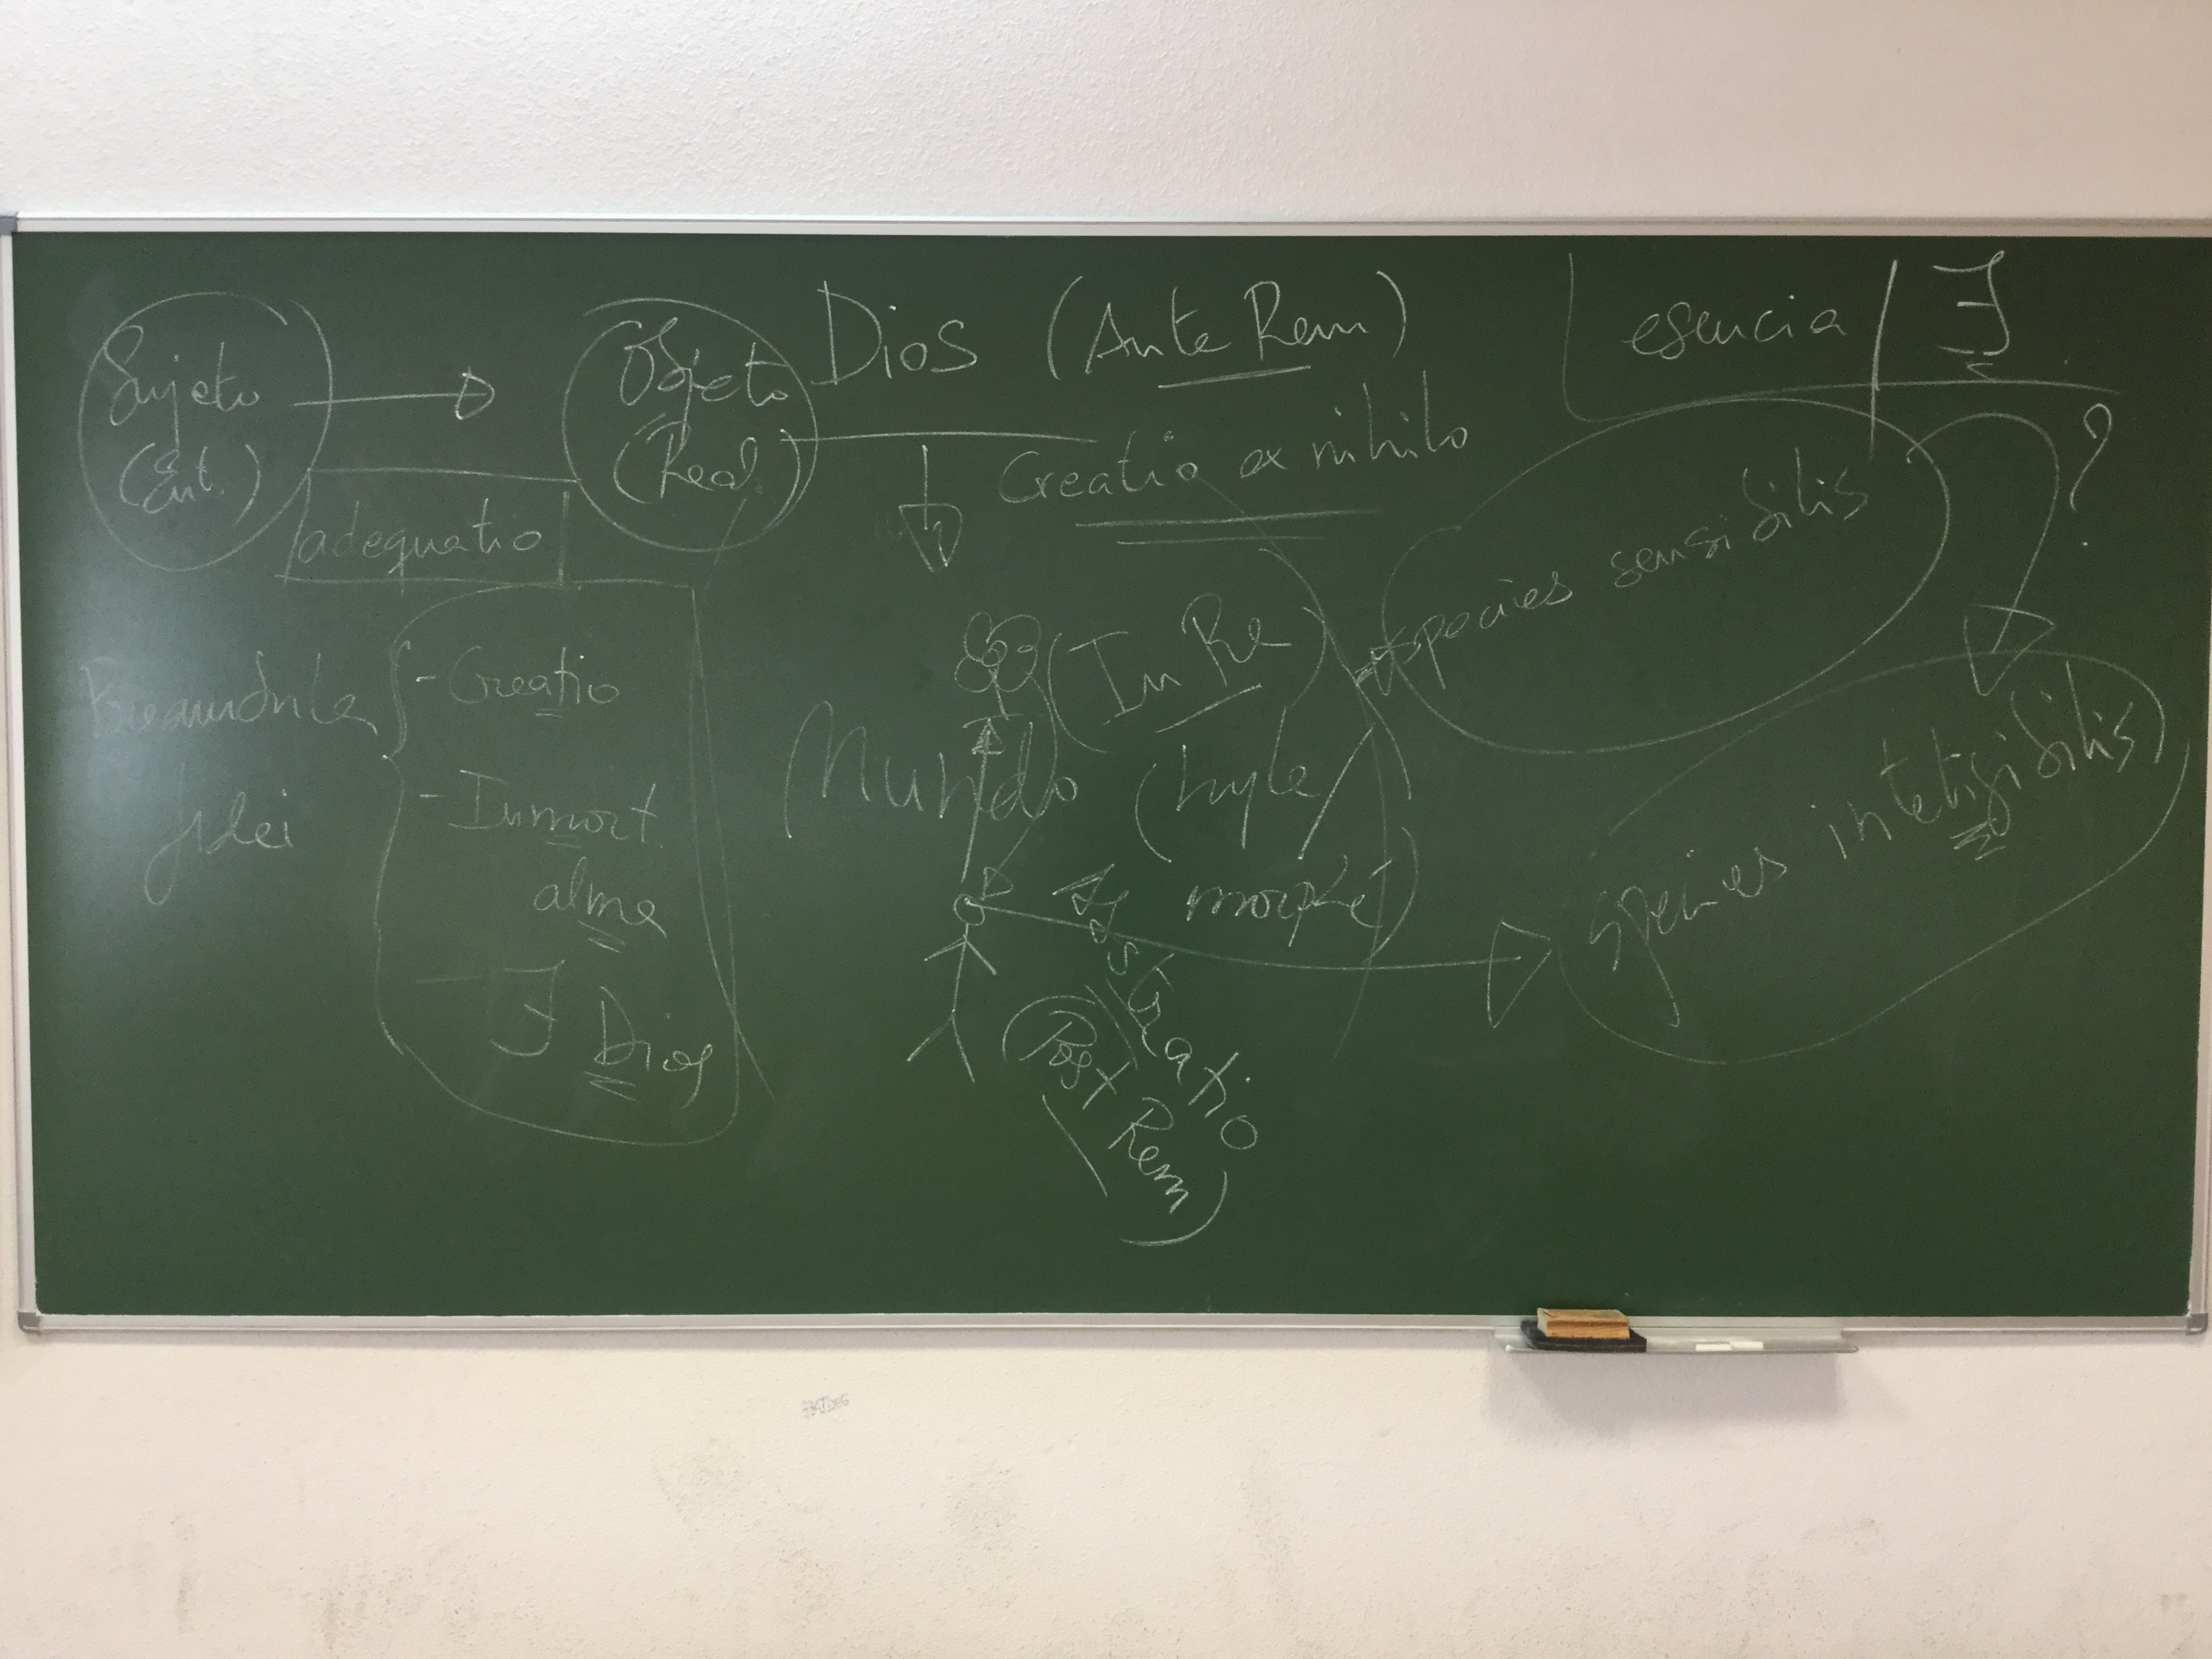 Sujeto
(Ent.)
adequatio
Objeto
(Real)
Dios (Ante Rem)
Creatio ex nihilo
esencia / ∃
?
species sensibilis
species inteligibilis
Preambula
fidei
- Creatio
- Inmort.
alma
- ∃ Dios
(In Re)
Mundo (hyle /
morphé)
Abstratio
(Post Rem)